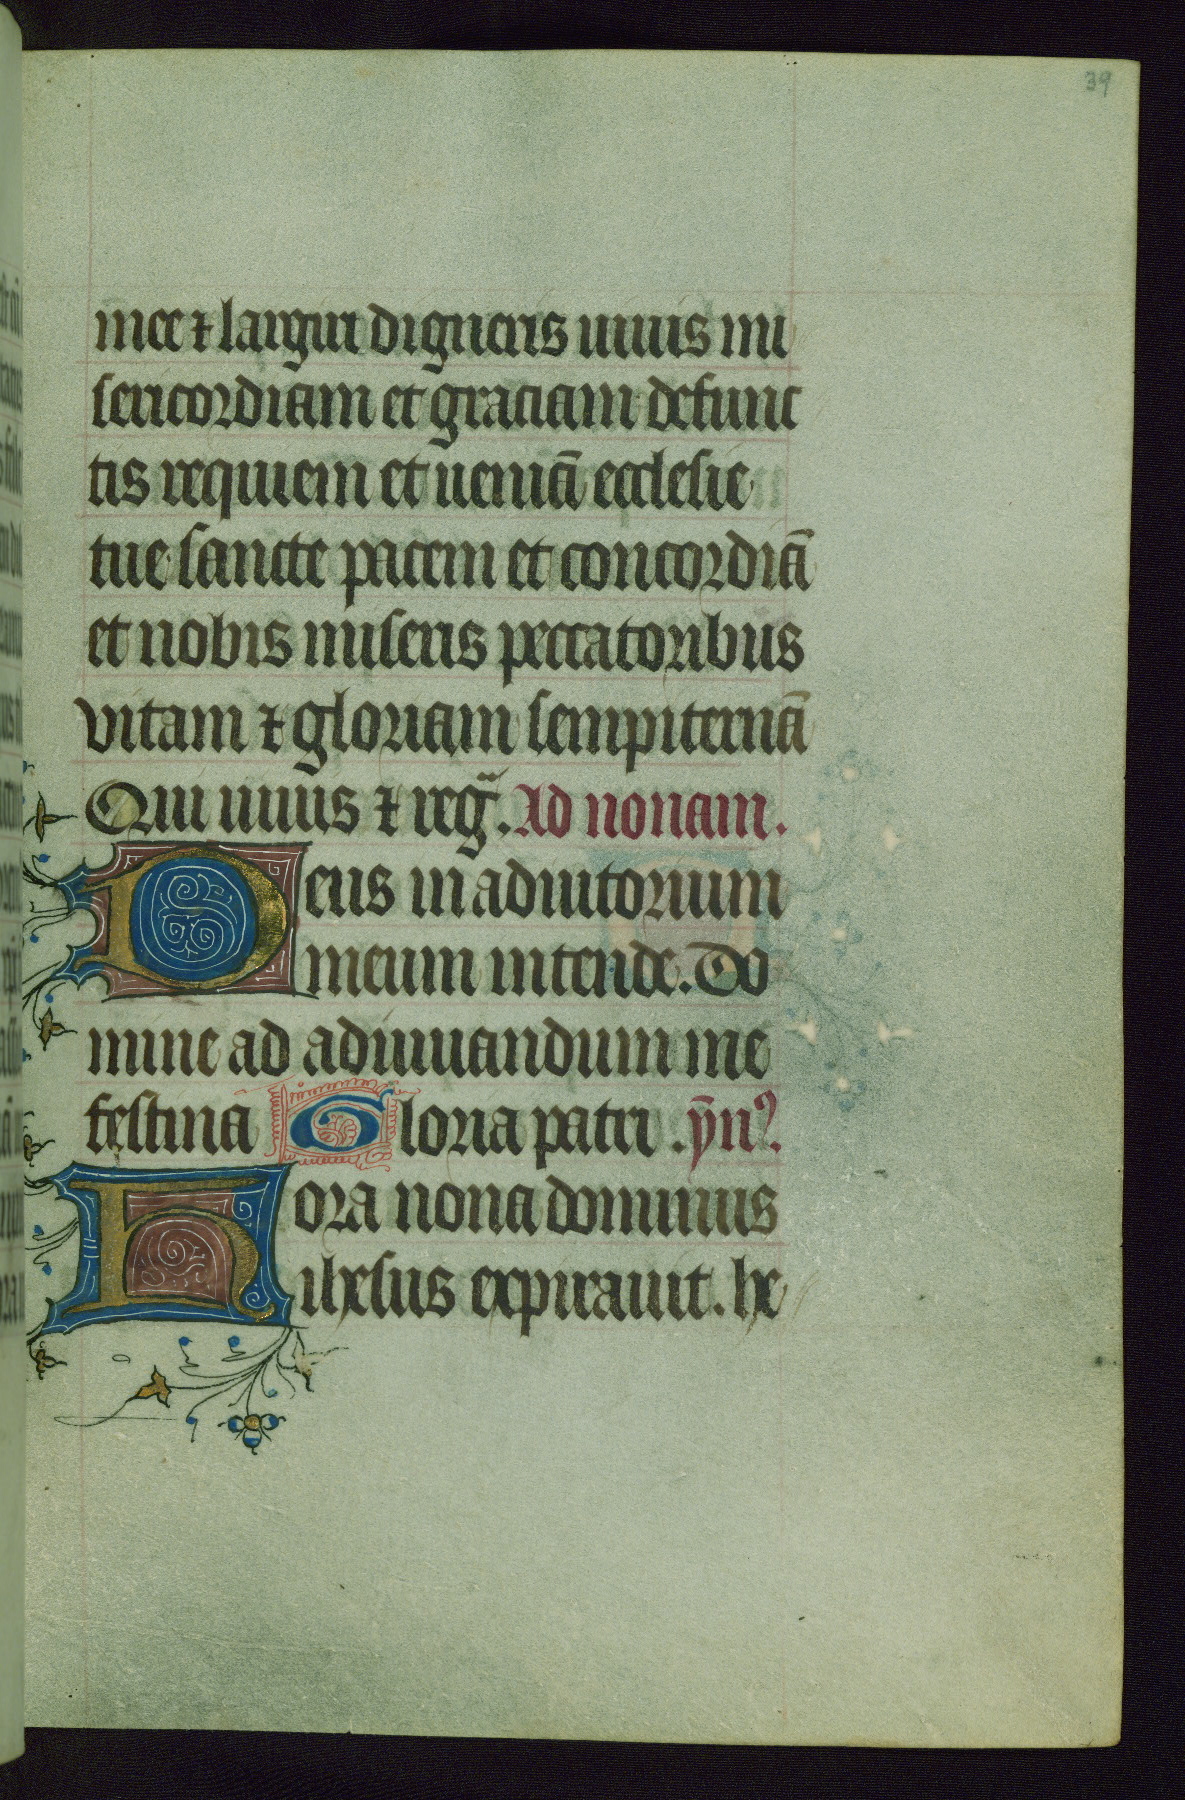 39
mee ⁊ largiri digneris uiuis mi
sericordiam et graciam defunc
tis requiem et ueniā ecclesie
tue sancte pacem et concordiā
et nobis miseris peccatoribus
vitam ⁊ gloriam sempiternā
Qui uiuis ⁊ reg̃. Ad nonam.
Deus in adiutorium
meum intende. Do
mine ad adiuuandum me
festina Gloria patri. ẏ̄nꝰ.
Hora nona dominus
ihesus expirauit. he